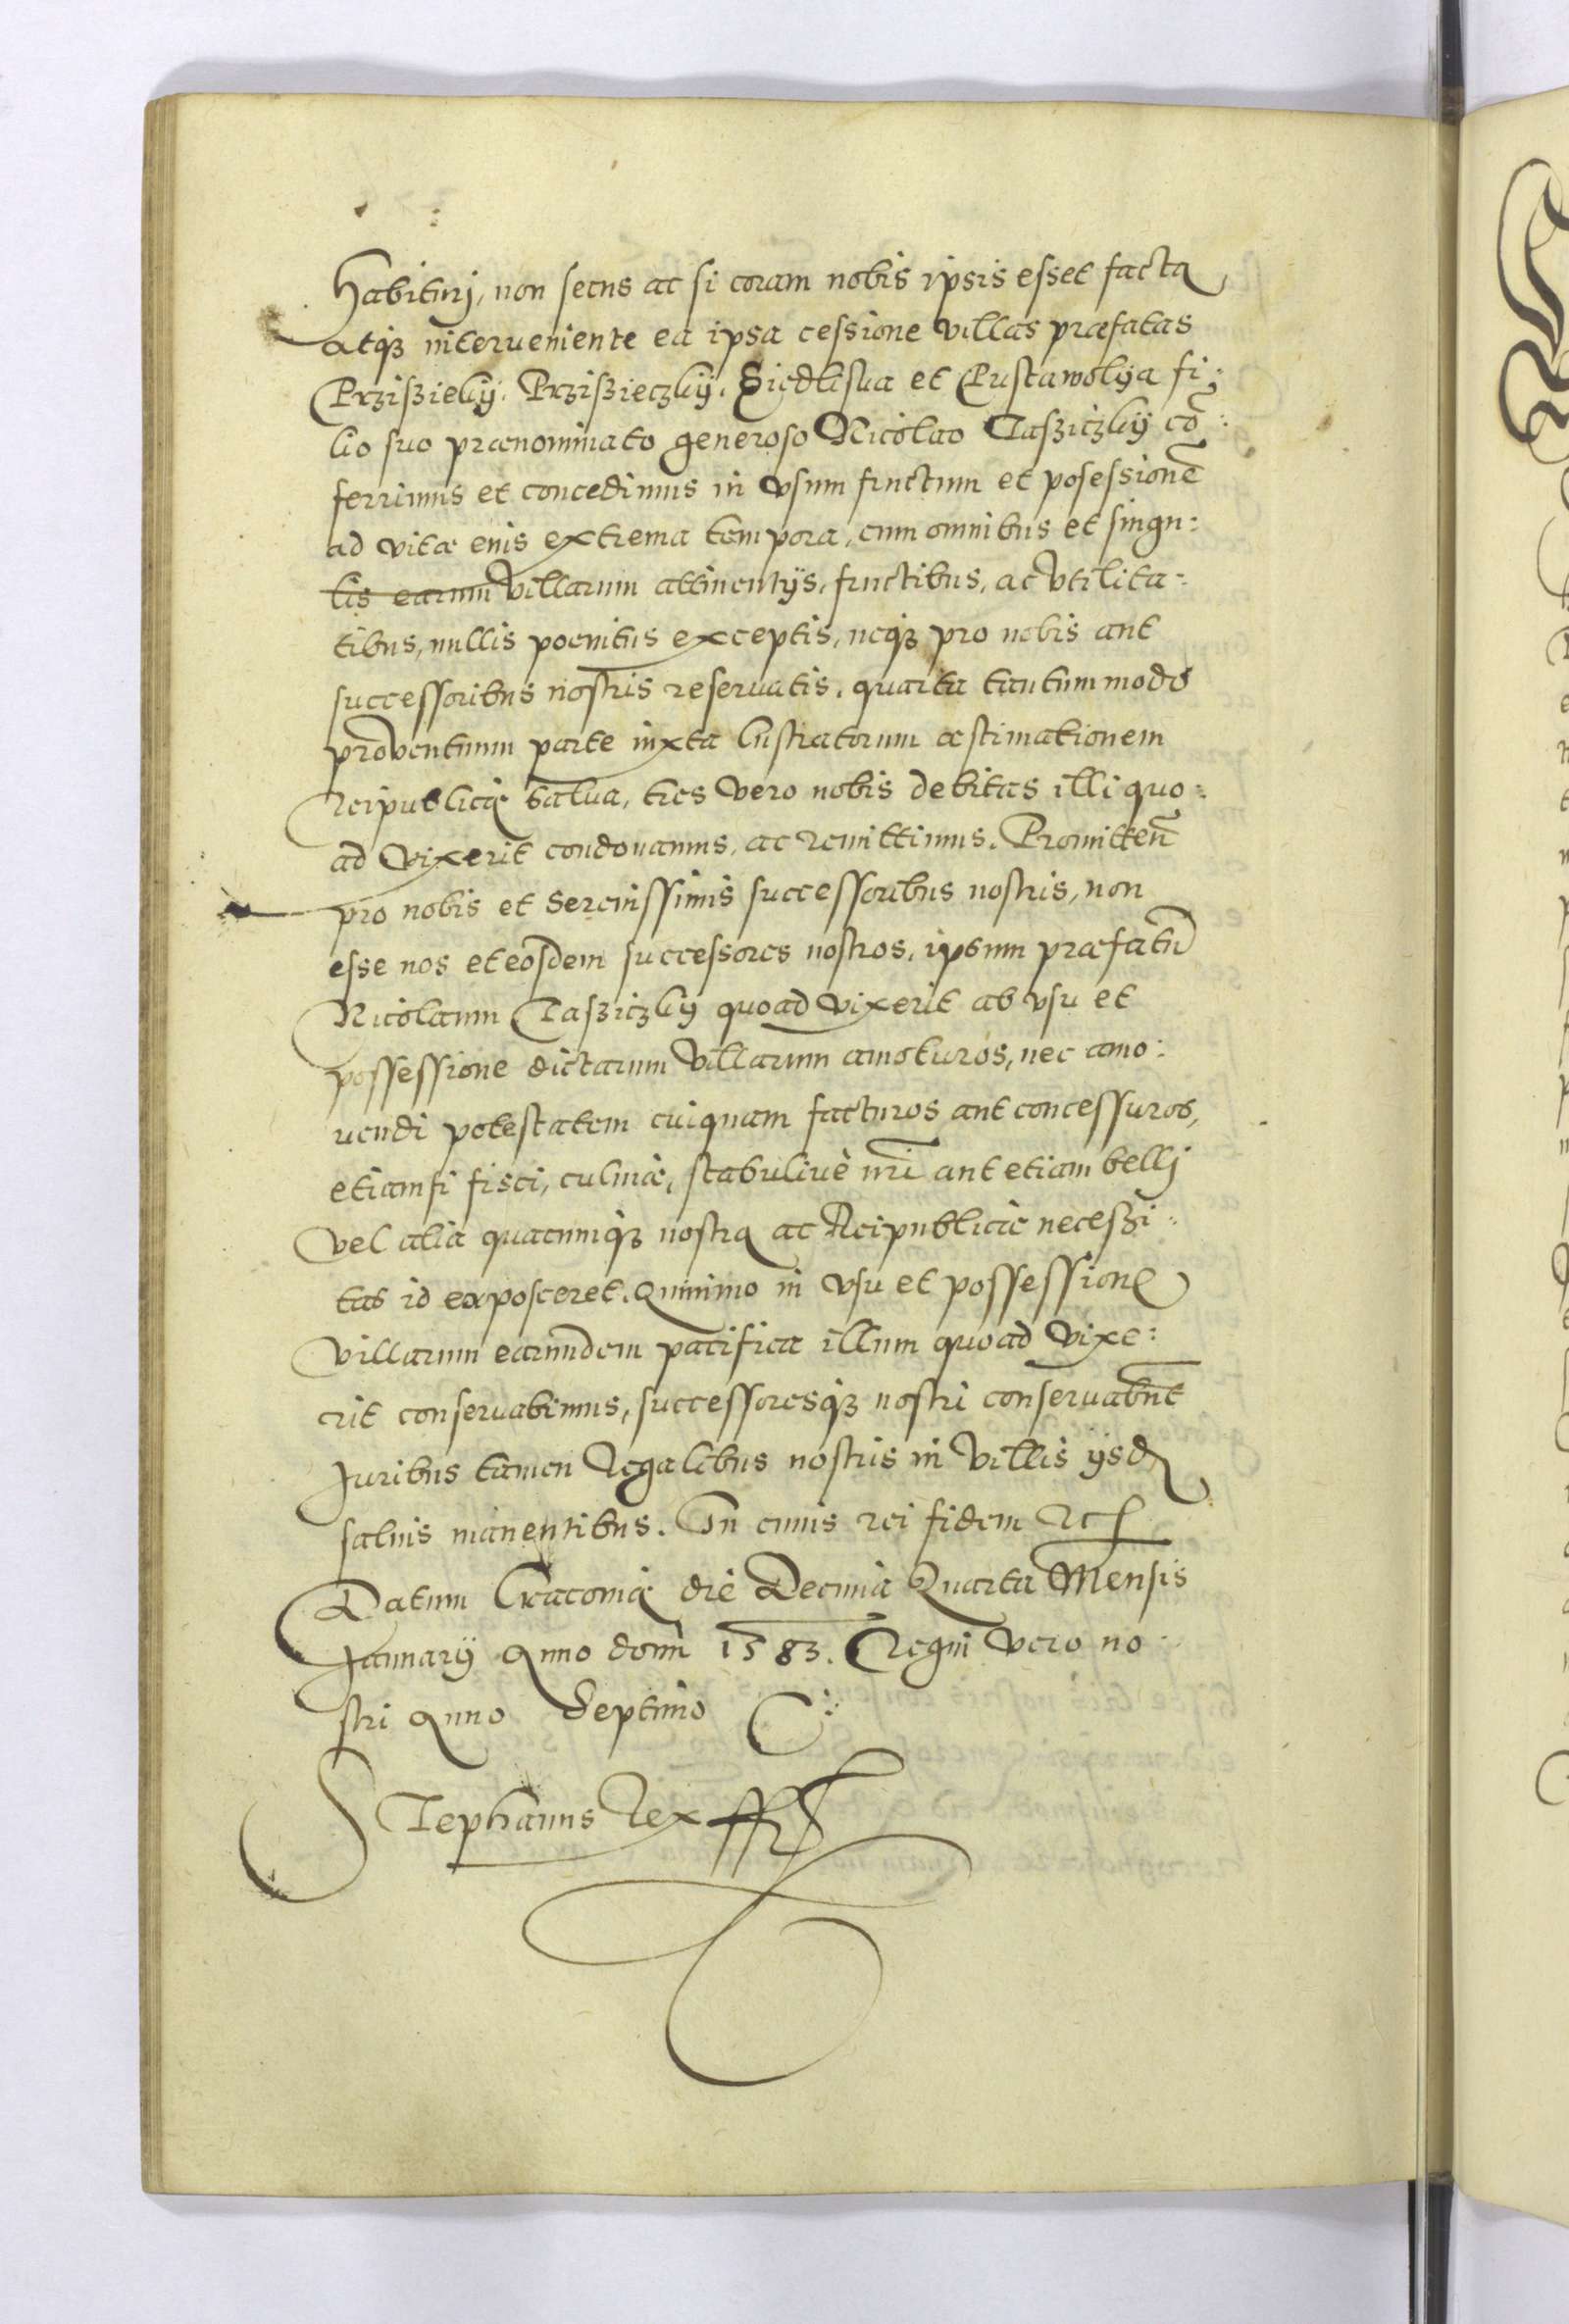 habiturj, non secus ac si coram nobis ipsis esset facta
atqꝫ interueniente ea ipsa cessione villas præfatas
Przißieky. Przißieczky. Siedliska et Pustawolya fi:
lio suo prænominato generoso Nicolao Taßiczky cō:
ferrimus et concedimus in vsum fructum et posessionē
ad vitæ euis extrema tempora, cum omnibus et singu:
lis earum villarum attinentijs, fructibus, ac vtilita:
tibus, nullis poenitus exceptis, neqꝫ pro nobis aut
successoribus nostris reseruatis. quarta tantummodo
prouentuum parte iuxta lustratorum æstimationem
Reipublicæ salua, tres vero nobis debitas illi quo:
ad vixerit condonamus, ac remittimus. Promitteñ
pro nobis et Serenissimis successoribus nostris, non
esse nos et eosdem successores nostros, ipsum præfatū
Nicolaum Taßiczky quoad vixerit ab vsu et
possessione dictarum villarum amoturos, nec amo:
uendi potestatem cuiquam facturos aut concessuros,
etiamsi fisci, culinæ, stabuliuè nr̄i aut etiam bellj
vel alia quacunqꝫ nostra ac Reipublicæ neceßi:
tas id exposceret. Quinimo in vsu et possessione
villarum earundem pacifica illum quoad vixe:
rit conseruabimus, successoresqꝫ nostri conseruabūt
Juribus tamen Regalibus nostris in villis ijsdē
saluis manentibus. In cuius rei fidem etc
Datum Cracouiæ die Decima Quarta Mensis
Januarij Anno domī 1583. Regni vero no:
stri Anno Septimo
Stephanus Rex